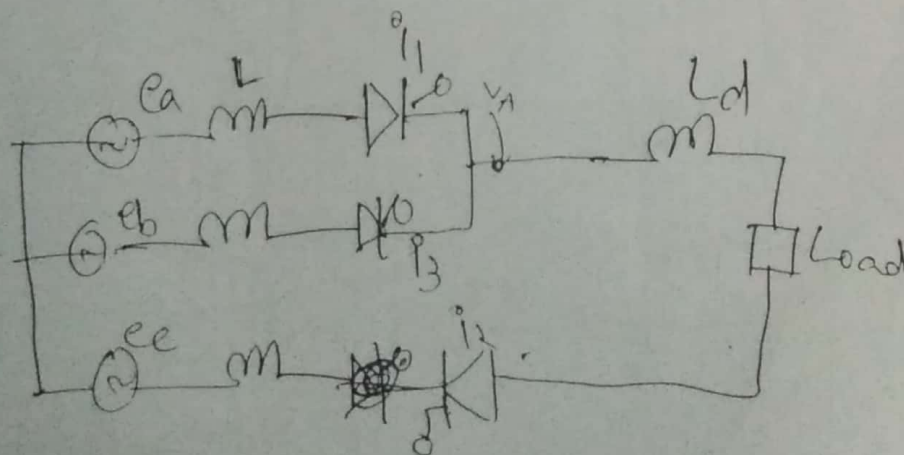 i1
ea L VA Ld
eb
i3
Load
ec i2